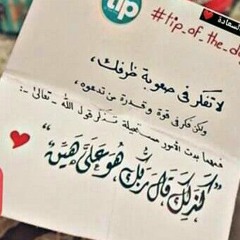 السعادة
tip
#tip_of_the_d
لا تفكر في صعوبة ظرفك،
ولكن فكر في قوة وقدرة من تدعوه،
فمهما بدت الأمور مستحيلة تذكر قول الله - تعالى - :
"كذلك قال ربك هو علي هين"